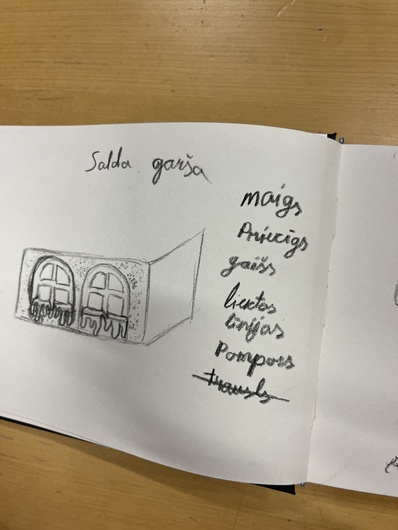 Salda garša
maigs
Priecīgs
gaišs
liektas
līnijas
Pompozs
trausls